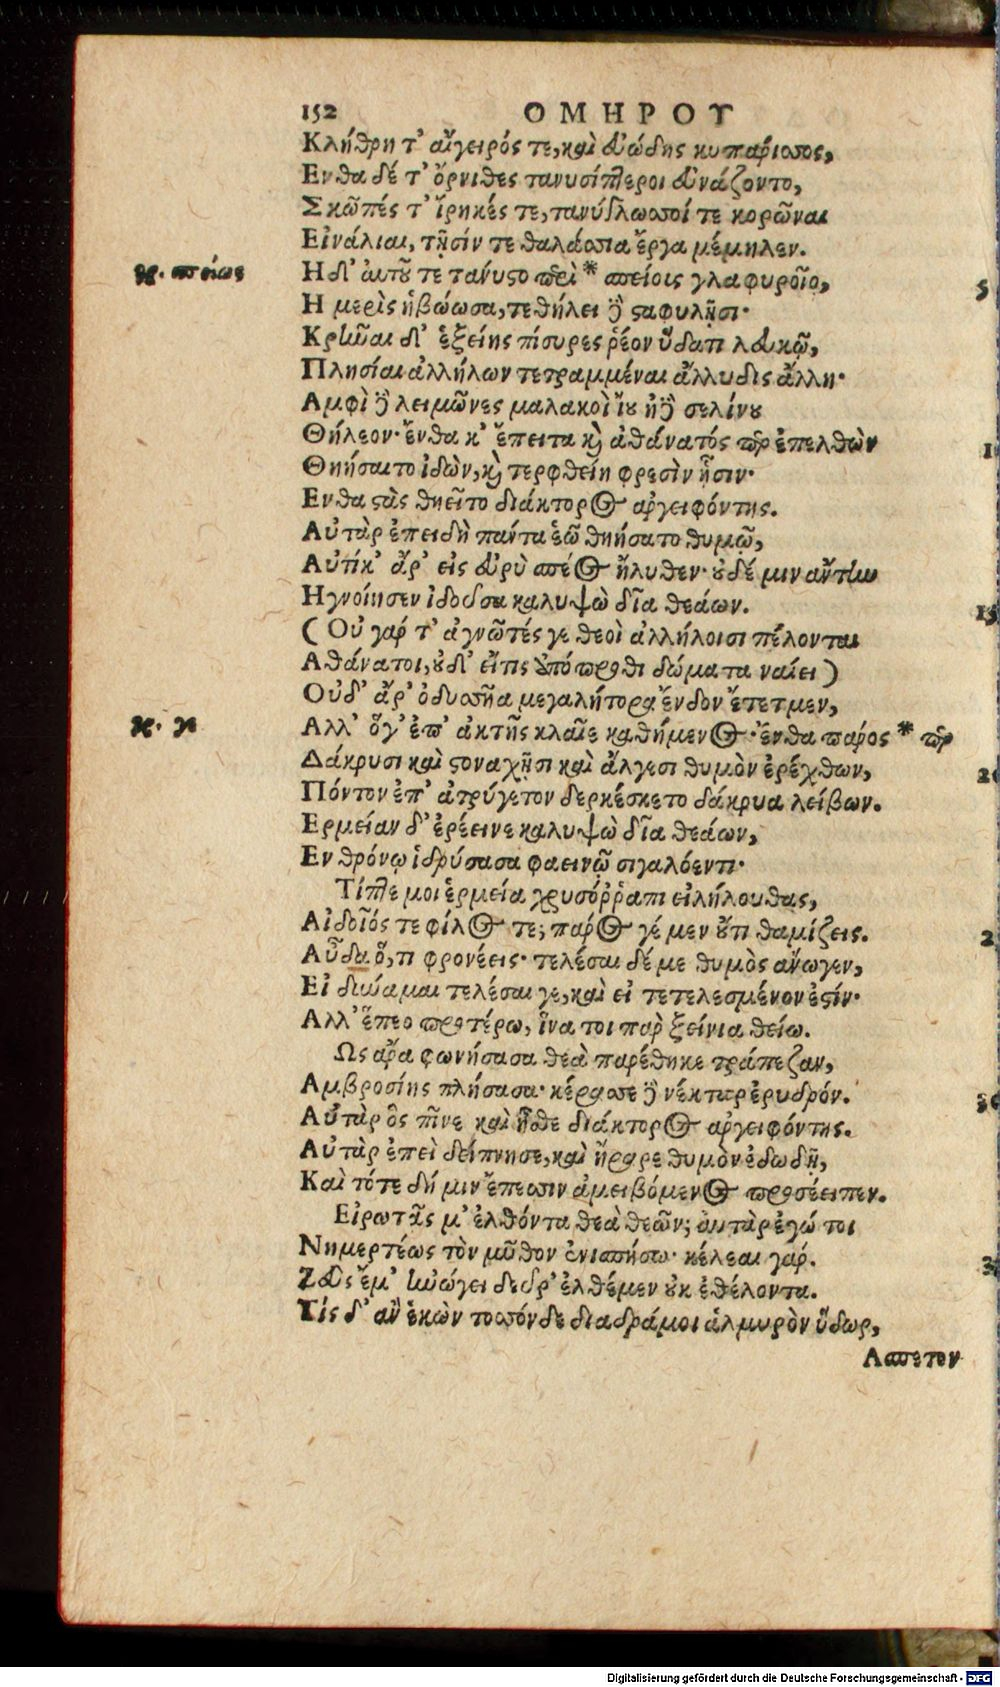 152 ΟΜΗΡΟΥ
Κλήθρη τ' αἴγειρός τε, καὶ εὐώδης κυπάρισσος,
Ενθα δέ τ' ὄρνιθες τανυσίπτεροι εὐνάζοντο,
Σκῶπές τ' ἴρηκές τε, τανύγλωσσοί τε κορῶναι
Εἰνάλιαι, τῇσίν τε θαλάσσια ἔργα μέμηλεν.
γρ. σπείους
Η δ' αὐτοῦ τε τάνυστο περὶ * σπείοις γλαφυροῖο,
Η μερὶς ἡβώωσα, τεθήλει δὲ σαφυλῇσι·
Κρῆναι δ' ἑξείης πίσυρες ῥέον ὕδατι λευκῷ,
Πλησίαι ἀλλήλων τετραμμέναι ἄλλυδις ἄλλη·
Αμφὶ δὲ λειμῶνες μαλακοὶ ἴου ἠδὲ σελίνου
Θήλεον· ἔνθα κ' ἔπειτα καὶ ἀθάνατός περ ἐπελθὼν
Θηήσαιτο ἰδὼν, καὶ τερφθείη φρεσὶν ᾗσιν·
Ενθα στὰς θηεῖτο διάκτορος ἀργειφόντης.
Αὐτὰρ ἐπειδὴ πάντα ἑῷ θηήσατο θυμῷ,
Αὐτίκ' ἄρ' εἰς εὐρὺ σπέος ἤλυθεν· οὐδέ μιν ἄντην
Ηγνοίησεν ἰδοῦσα καλυψὼ δῖα θεάων.
( Οὐ γάρ τ' ἀγνῶτές γε θεοὶ ἀλλήλοισι πέλονται
Αθάνατοι, οὐδ' εἴτις ὑπόπροθι δώματα ναίει )
Οὐδ' ἄρ' ὀδυσσῆα μεγαλήτορα ἔνδον ἔτετμεν,
Αλλ' ὅγ' ἐπ' ἀκτῆς κλαῖε καθήμενος· ἔνθα πάρος * περ
Δάκρυσι καὶ στοναχῇσι καὶ ἄλγεσι θυμὸν ἐρέχθων,
Πόντον ἐπ' ἀτρύγετον δερκέσκετο δάκρυα λείβων.
Ερμείαν δ' ἐρέεινε καλυψὼ δῖα θεάων,
Εν θρόνῳ ἱδρύσασα φαεινῷ σιγαλόεντι·
Τίπτε μοι ἑρμεία χρυσόῤῥαπι εἰλήλουθας,
Αἰδοῖός τε φίλος τε; πάρος γέ μεν οὔτι θαμίζεις.
Αὔδα ὅ,τι φρονέεις· τελέσαι δέ με θυμὸς ἄνωγεν,
Εἰ δύναμαι τελέσαι γε, καὶ εἰ τετελεσμένον ἐστίν·
Αλλ' ἕπεο προτέρω, ἵνα τοι παρ ξείνια θείω.
Ως ἄρα φωνήσασα θεὰ παρέθηκε τράπεζαν,
Αμβροσίης πλήσασα· κέρασσε δὲ νέκταρ ἐρυθρόν.
Αὐτὰρ ὃς πῖνε καὶ ἦσθε διάκτορος ἀργειφόντης.
Αὐτὰρ ἐπεὶ δείπνησε, καὶ ἤραρε θυμὸν ἐδωδῇ,
Καὶ τότε δή μιν ἔπεσσιν ἀμειβόμενος προσέειπεν.
Εἰρωτᾷς μ' ἐλθόντα θεὰ θεῶν; αὐτὰρ ἐγώ τοι
Νημερτέως τὸν μῦθον ἐνισπήσω· κέλεαι γάρ.
Ζεὺς ἔμ' ἠνώγει δεῦρ' ἐλθέμεν οὐκ ἐθέλοντα.
Τίς δ' ἂν ἑκὼν τοσσόνδε διαδράμοι ἁλμυρὸν ὕδωρ,
Ασπετον
Digitalisierung gefördert durch die Deutsche Forschungsgemeinschaft - DFG